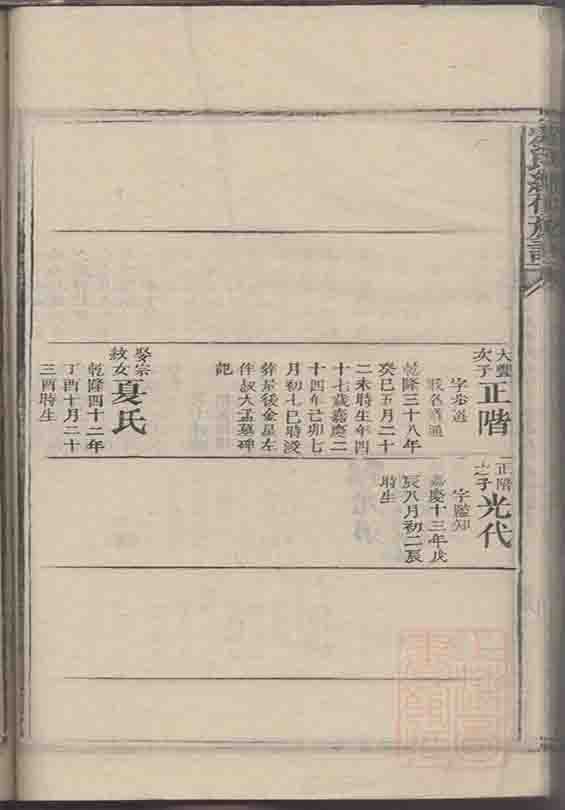 氏續修族譜
大龔
次子
正階
字步逵
派名道通
乾隆三十八年
癸巳五月二十
二未時生年四
十七歲嘉慶二
十四年己卯七
月初七巳時歿
葬景後金星左
伴叔大孟墓碑
記
娶宗
敘女
夏氏
乾隆四十二年
丁酉十月二十
三酉時生
正階
之子
光代
字鑑知
嘉慶十三年戊
辰八月初二辰
時生